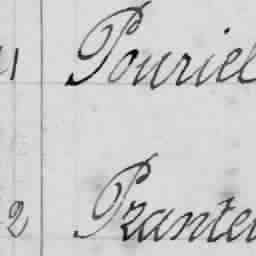 1 Pouriel
2 Prante